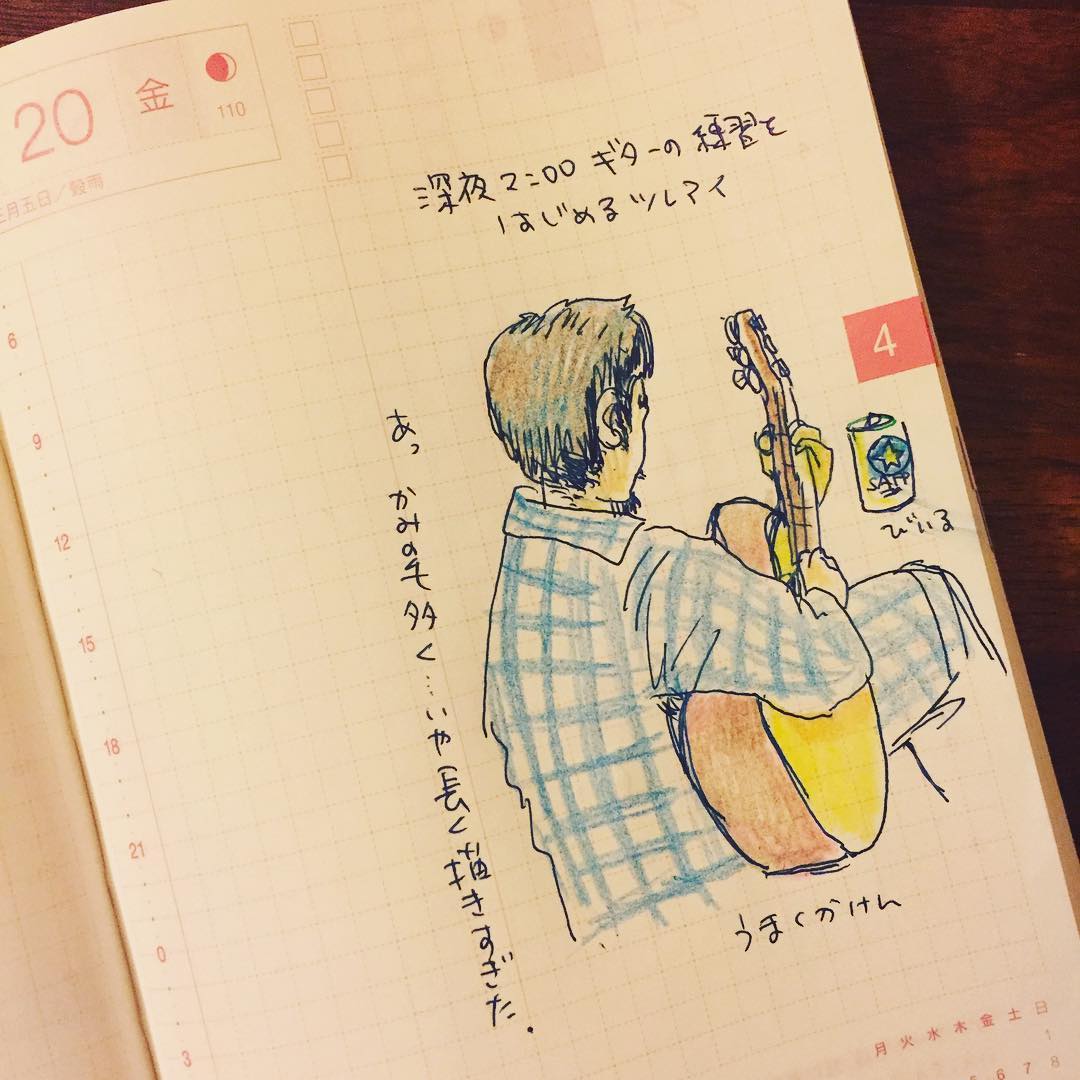 20 金
110
三月五日／穀雨
深夜2:00 ギターの練習を
はじめるツレアイ
4
6
9
12
15
18
21
0
3
あっ かみの毛多く…いや長く描きすぎた.
びいる
うまくかけん
月 火 水 木 金 土 日
1
6 7 8